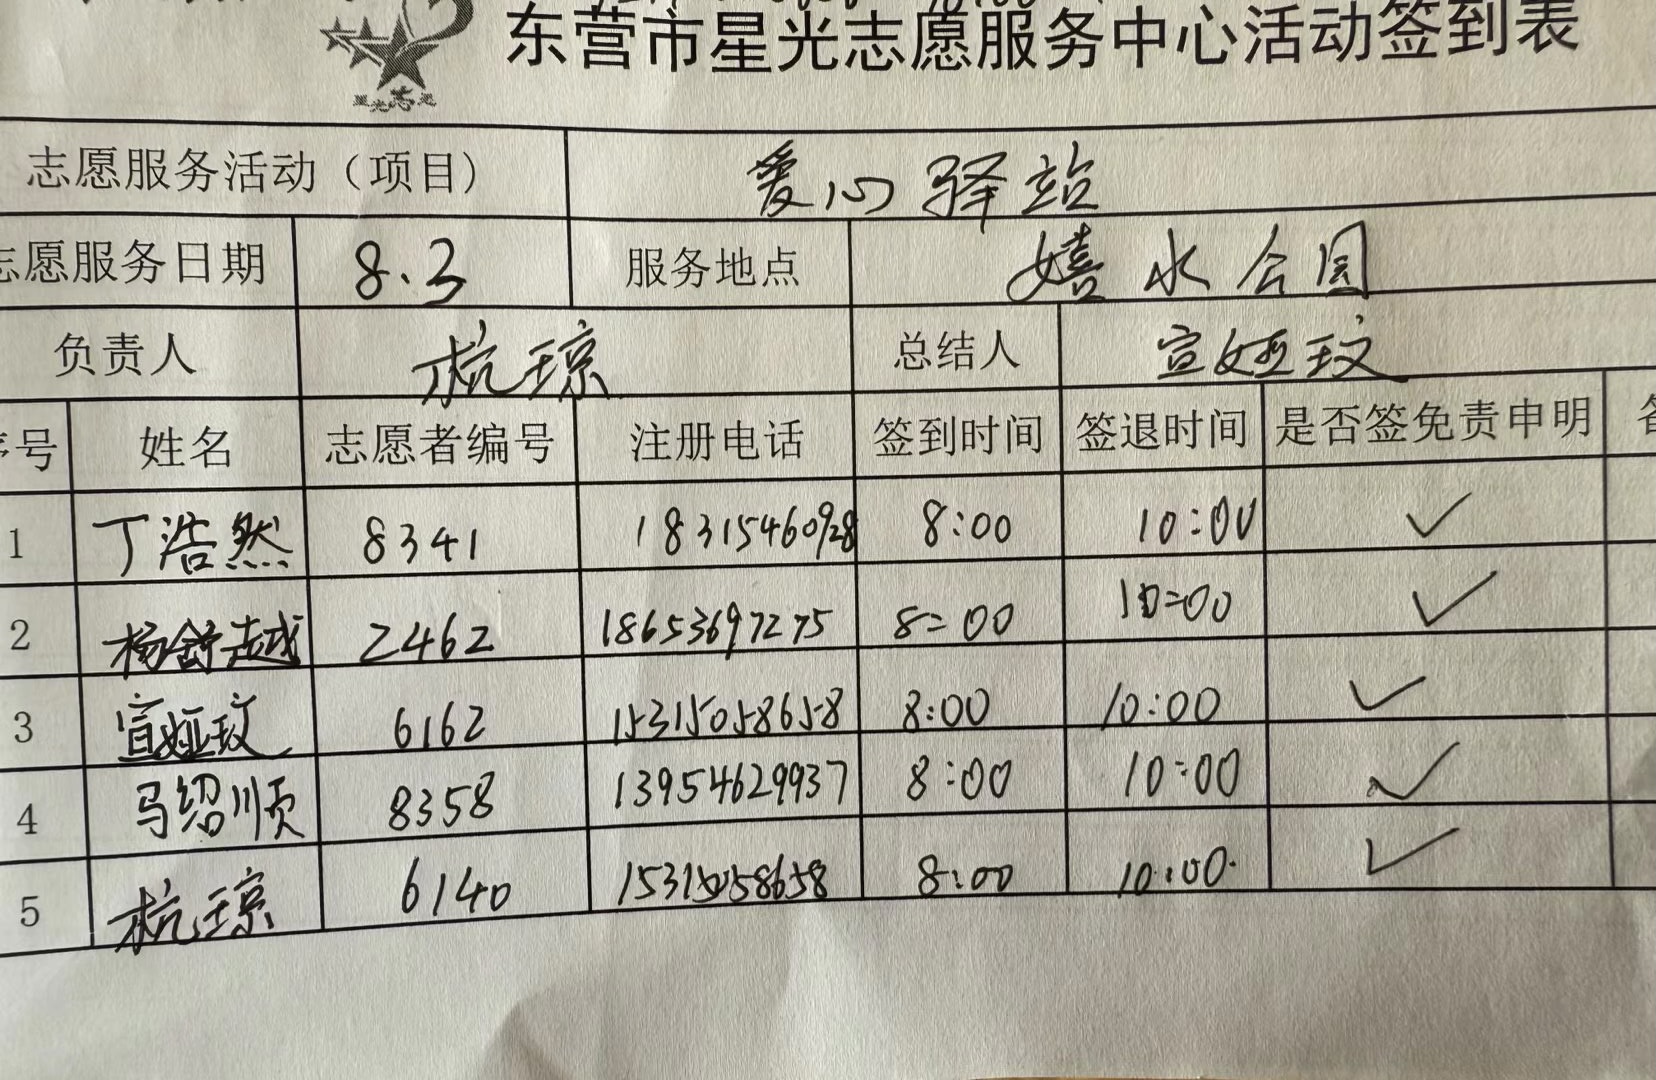 东营市星光志愿服务中心活动签到表
星光志愿
志愿服务活动（项目） 爱心驿站
志愿服务日期 8.3 服务地点 嬉水公园
负责人 杭琼 总结人 宣娅玟
序号 姓名 志愿者编号 注册电话 签到时间 签退时间 是否签免责申明 备
1 丁浩然 8341 18315460928 8:00 10:00 ✓
2 杨舒越 2462 18653697275 8:00 10:00 ✓
3 宣娅玟 6162 15315058658 8:00 10:00 ✓
4 马绍顺 8358 13954629937 8:00 10:00 ✓
5 杭琼 6140 15315058658 8:00 10:00 ✓